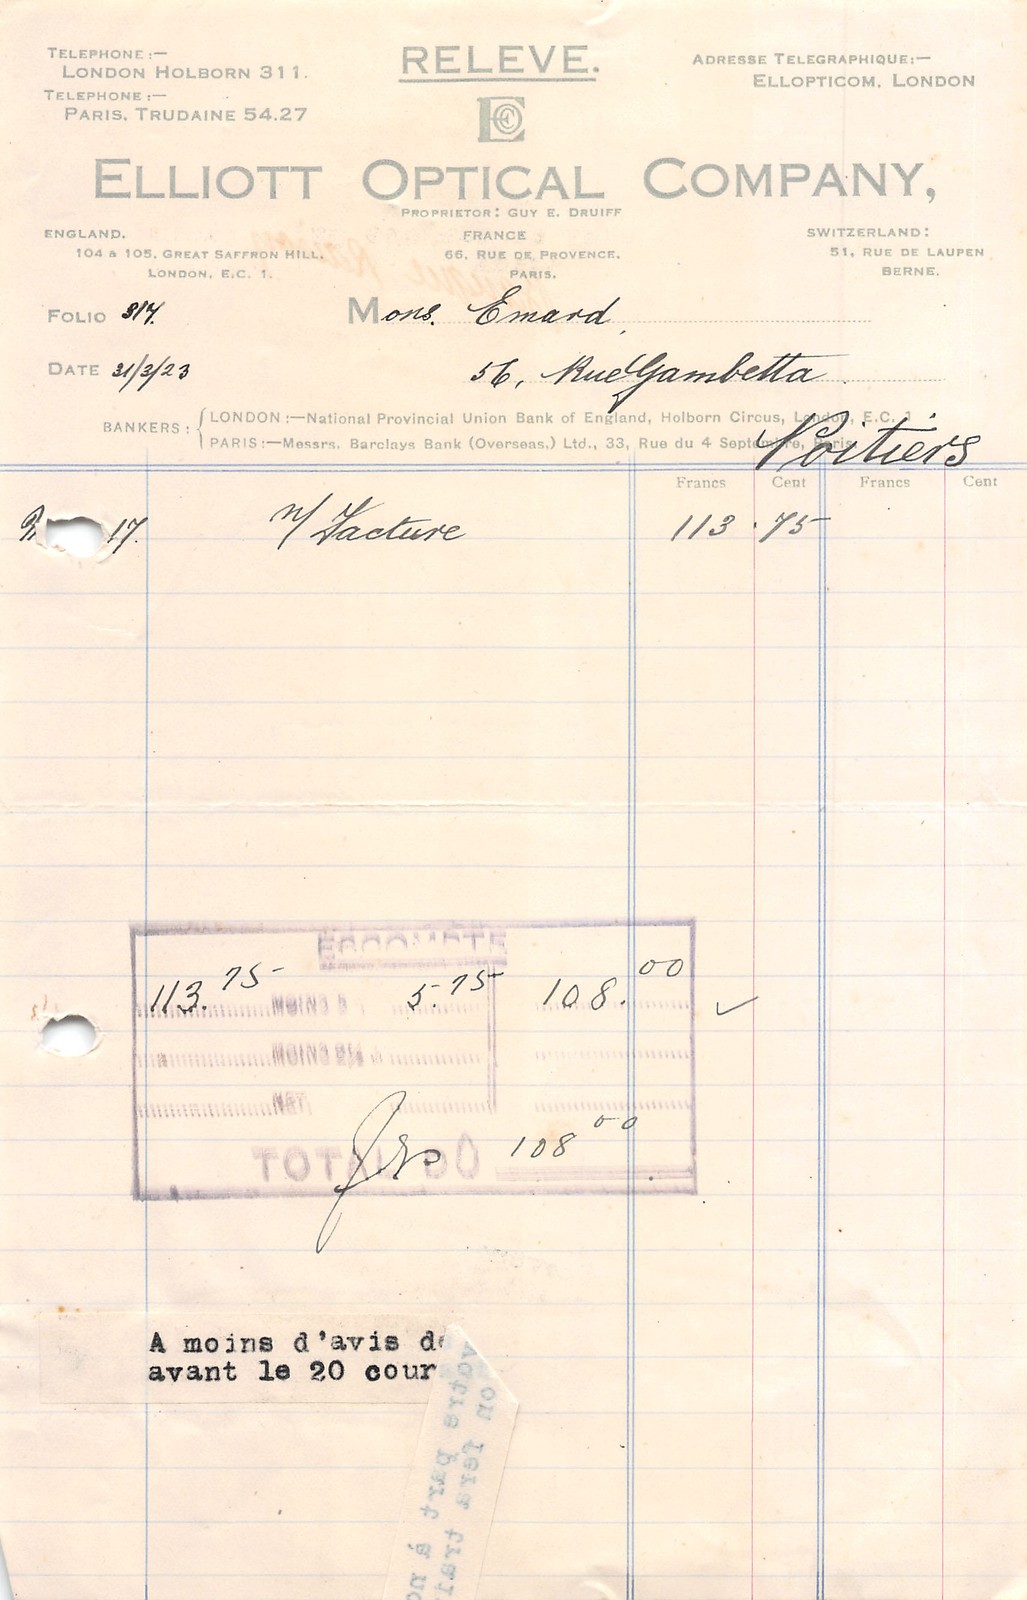 TELEPHONE :—
LONDON HOLBORN 311.
TELEPHONE :—
PARIS, TRUDAINE 54.27
RELEVE.
ADRESSE TELEGRAPHIQUE:—
ELLOPTICOM, LONDON
ELLIOTT OPTICAL COMPANY,
PROPRIETOR: GUY E. DRUIFF
ENGLAND.
104 & 105, GREAT SAFFRON HILL,
LONDON, E.C. 1.
FRANCE
66, RUE DE PROVENCE,
PARIS.
SWITZERLAND:
51, RUE DE LAUPEN
BERNE.
FOLIO 317.
Mons. Emard
DATE 31/3/23
56, Rue Gambetta
BANKERS :
LONDON :—National Provincial Union Bank of England, Holborn Circus, London, E.C. 1
PARIS :—Messrs. Barclays Bank (Overseas.) Ltd., 33, Rue du 4 Septembre, Paris
Poitiers
Francs Cent Francs Cent
17. n/ Facture 113 . 75
ESCOMPTE
113.75 MOINS 5.75 108.00
MOINS
NET
TOTAL 108 00
A moins d'avis de
avant le 20 cour
on fera trai
votre part à no